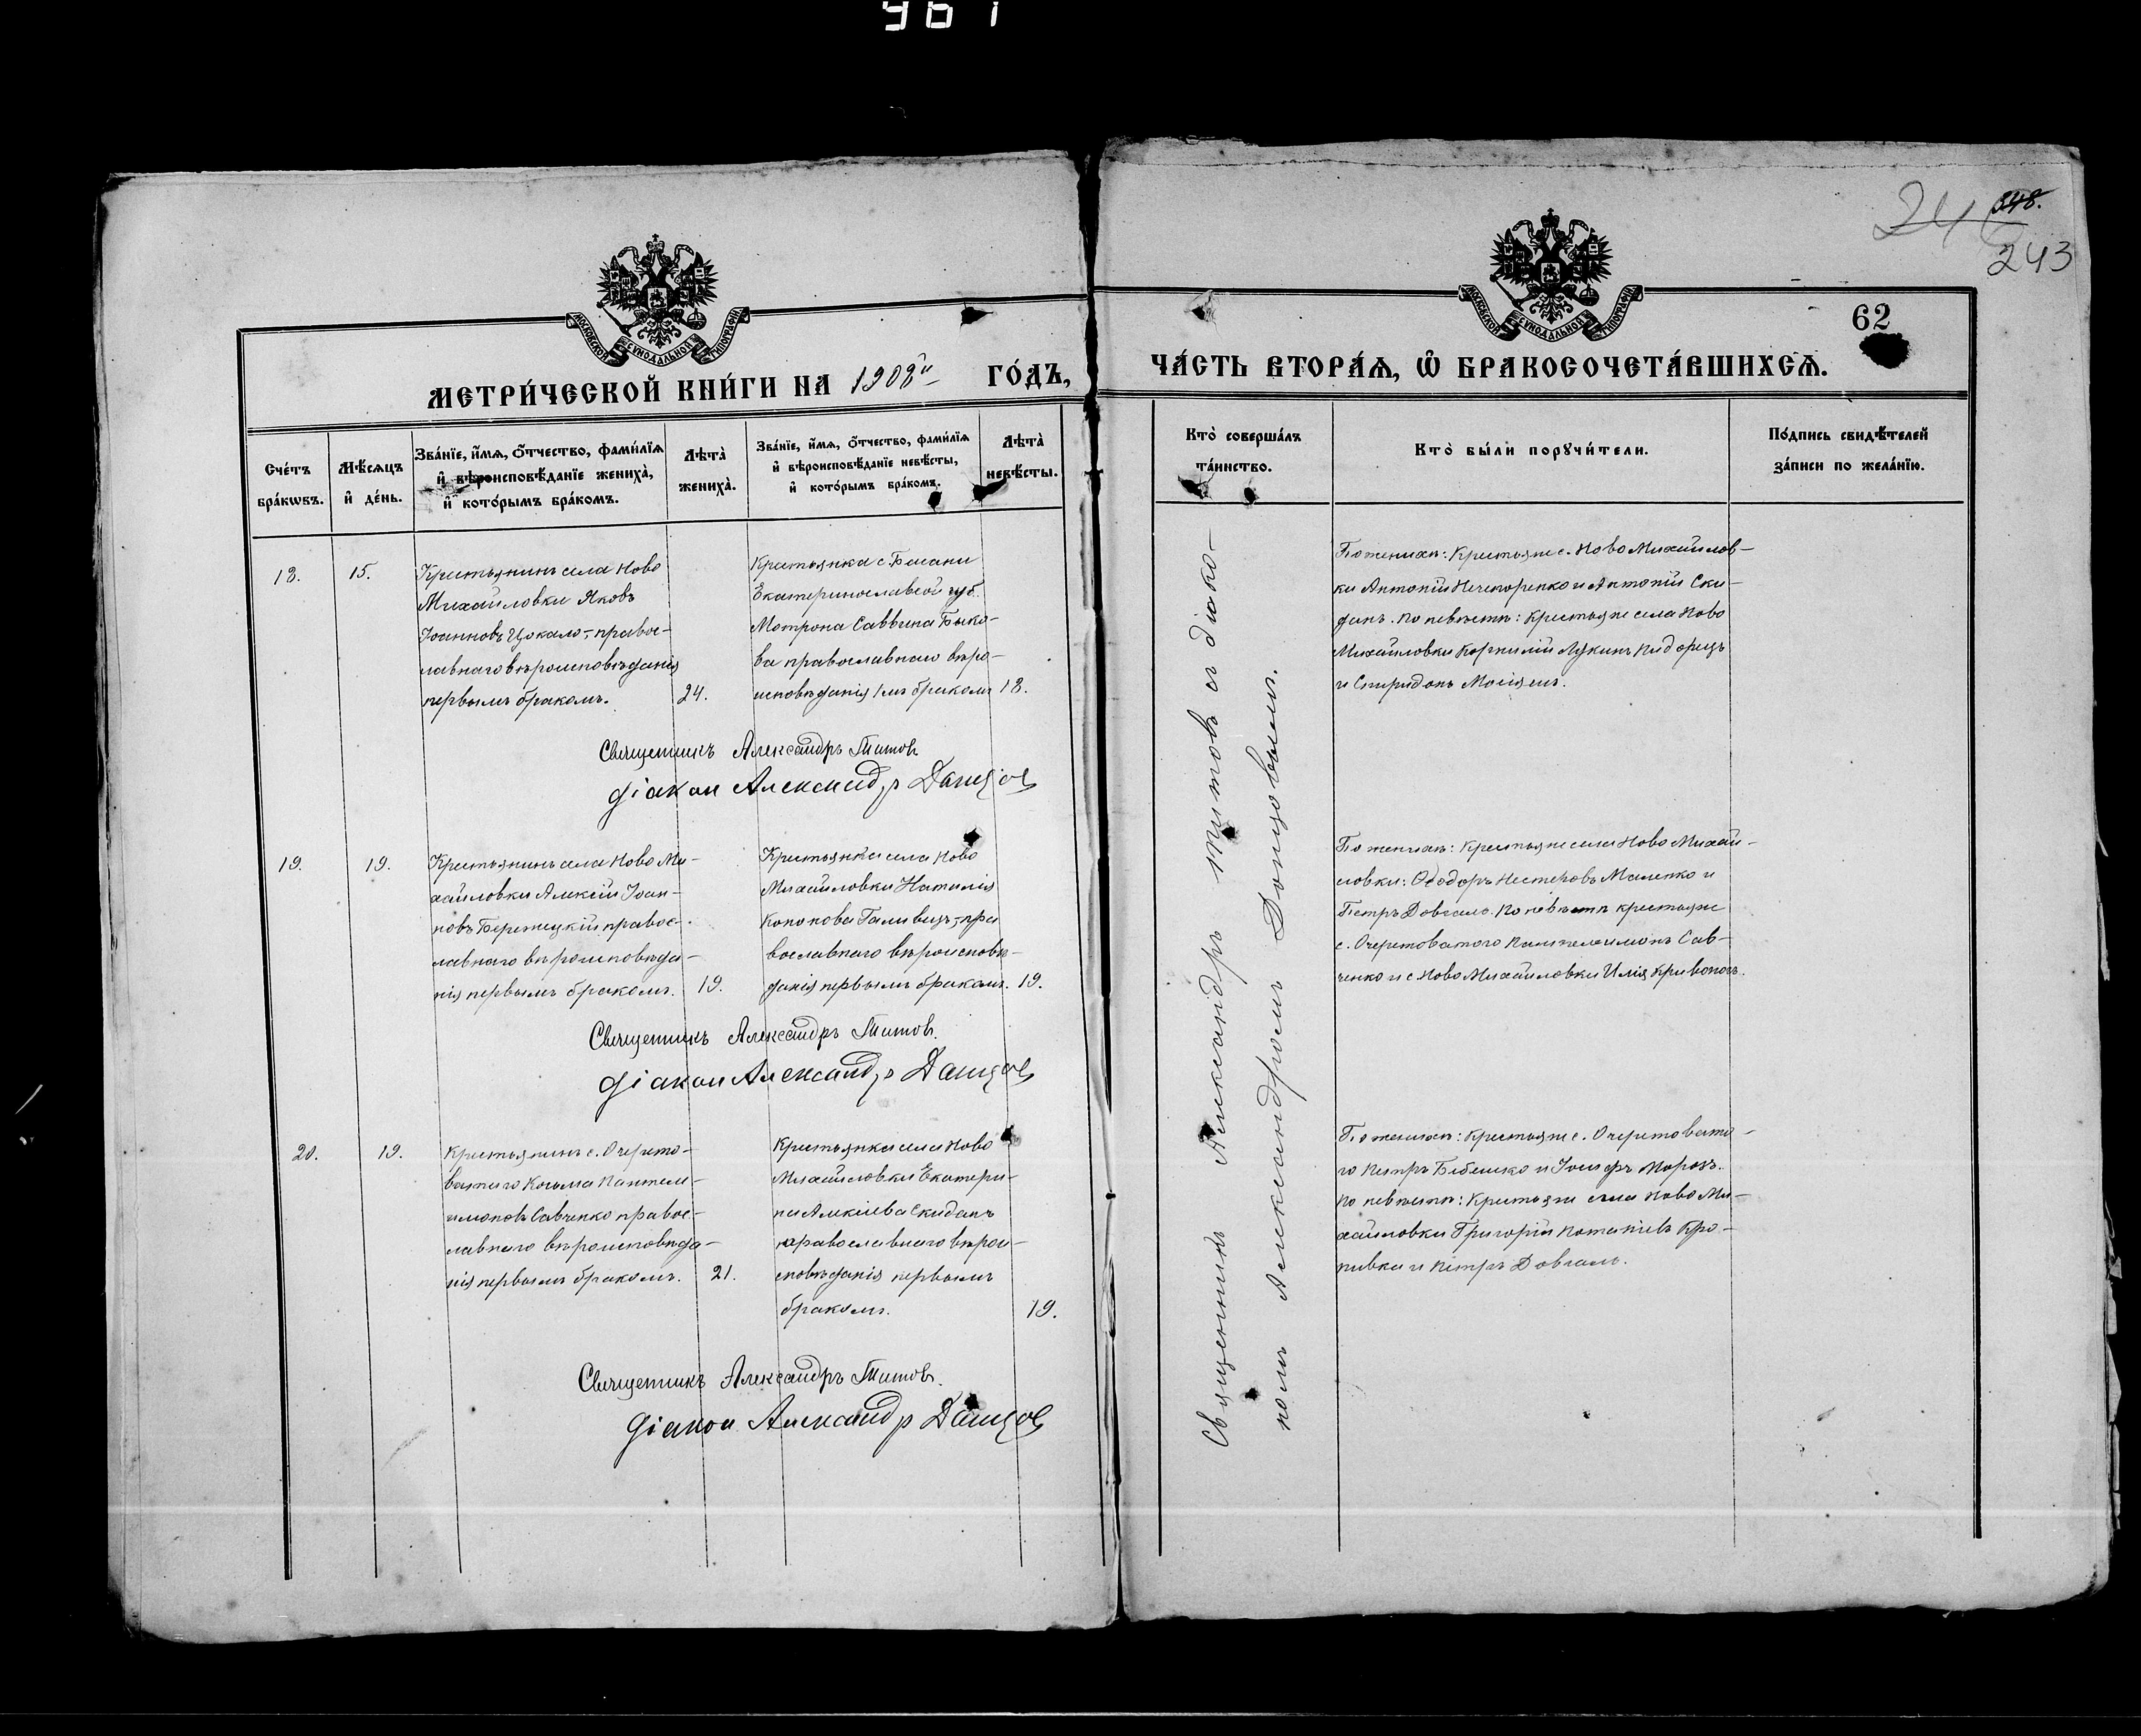 961
348.
24
243
МОСКОВСКОЙ СѴНОДАЛЬНОЙ ТИПОГРАФІИ
МОСКОВСКОЙ СѴНОДАЛЬНОЙ ТИПОГРАФІИ
62
МЕТРИ́ЧЕСКОЙ КНИ́ГИ НА 1908й ГО́ДЪ,
ЧА́СТЬ ВТОРА́Ѧ, Ѽ БРАКОСОЧЕТА́ВШИХСѦ.
Сче́тъ
бра́кѡвъ.
Мѣ́сѧцъ
и҆ де́нь.
Зва́нїе, и҆́мѧ, ѻ҆́тчество, фами́лїѧ
и҆ вѣроисповѣ́данїе жениха̀,
и҆ кото́рымъ бра́комъ.
Лѣта̀
жениха̀.
Зва́нїе, и҆́мѧ, ѻ҆́тчество, фами́лїѧ
и҆ вѣроисповѣ́данїе невѣ́сты,
и҆ кото́рымъ бра́комъ.
Лѣта̀
невѣ́сты.
Кто̀ соверша́лъ
та́инство.
Кто̀ бы́ли порꙋчи́тели.
По́дпись свидѣ́телей
за́писи по жела́нїю.
18.
15.
Крестьянинъ села Ново
Михайловки Яковъ
Іоанновъ Цокало, правос-
лавнаго вѣроисповѣданія
первымъ бракомъ.
24.
Крестьянка с. Басани
Екатеринославской губ.
Матрона Саввина Быко-
ва православнаго вѣро-
исповѣданія 1мъ бракомъ
18.
По женихѣ: Крестьяне с. Ново Михайлов-
ки Антоній Нечепоренко и Антоній Ски-
данъ. По невѣстѣ: Крестьяне села Ново
Михайловки Корнилій Лукинъ
и Спиридонъ
Священникъ Александръ Титовъ
Діаконъ Александръ Донцовъ
19.
19.
Крестьянинъ села Ново Ми-
хайловки Алексій Іоан-
новъ Бережецкій правос-
лавнаго вѣроисповѣда-
нія первымъ бракомъ.
19.
Крестьянка села Ново
Михайловки Наталія
Кононова Галивецъ, пра
вославнаго вѣроисповѣ-
данія первымъ бракомъ.
19.
По женихѣ: Крестьяне села Ново Михай-
ловки: Ѳеодоръ Нестеровъ Маленко и
Петръ Довгаль. По невѣстѣ крестьяне
с. Очеретоватого Пантелеимонъ Сав-
ченко и с Ново Михайловки Илія Кривоносъ.
Священникъ Александръ Титовъ.
Діаконъ Александръ Донцовъ
20.
19.
Крестьянинъ с. Очерето-
ватаго Косьма Пантеле-
имоновъ Савченко правос-
лавнаго вѣроисповѣда-
нія первымъ бракомъ.
21.
Крестьянка села Ново
Михайловки Екатери-
на Алексіева Скиданъ
православнаго вѣрои-
сповѣданія первымъ
бракомъ.
19.
По женихѣ: Крестьяне с. Очеретовата-
го Петръ и Іосифъ Морозъ.
По невѣстѣ: Крестьяне села Ново Ми-
хайловки Григорій Потапіевъ Кро-
пивка и Петръ Довгаль.
Священникъ Александръ Титовъ.
Діаконъ Александръ Донцовъ
Священникъ Александръ Титовъ съ діако-
номъ Александромъ Донцовымъ.